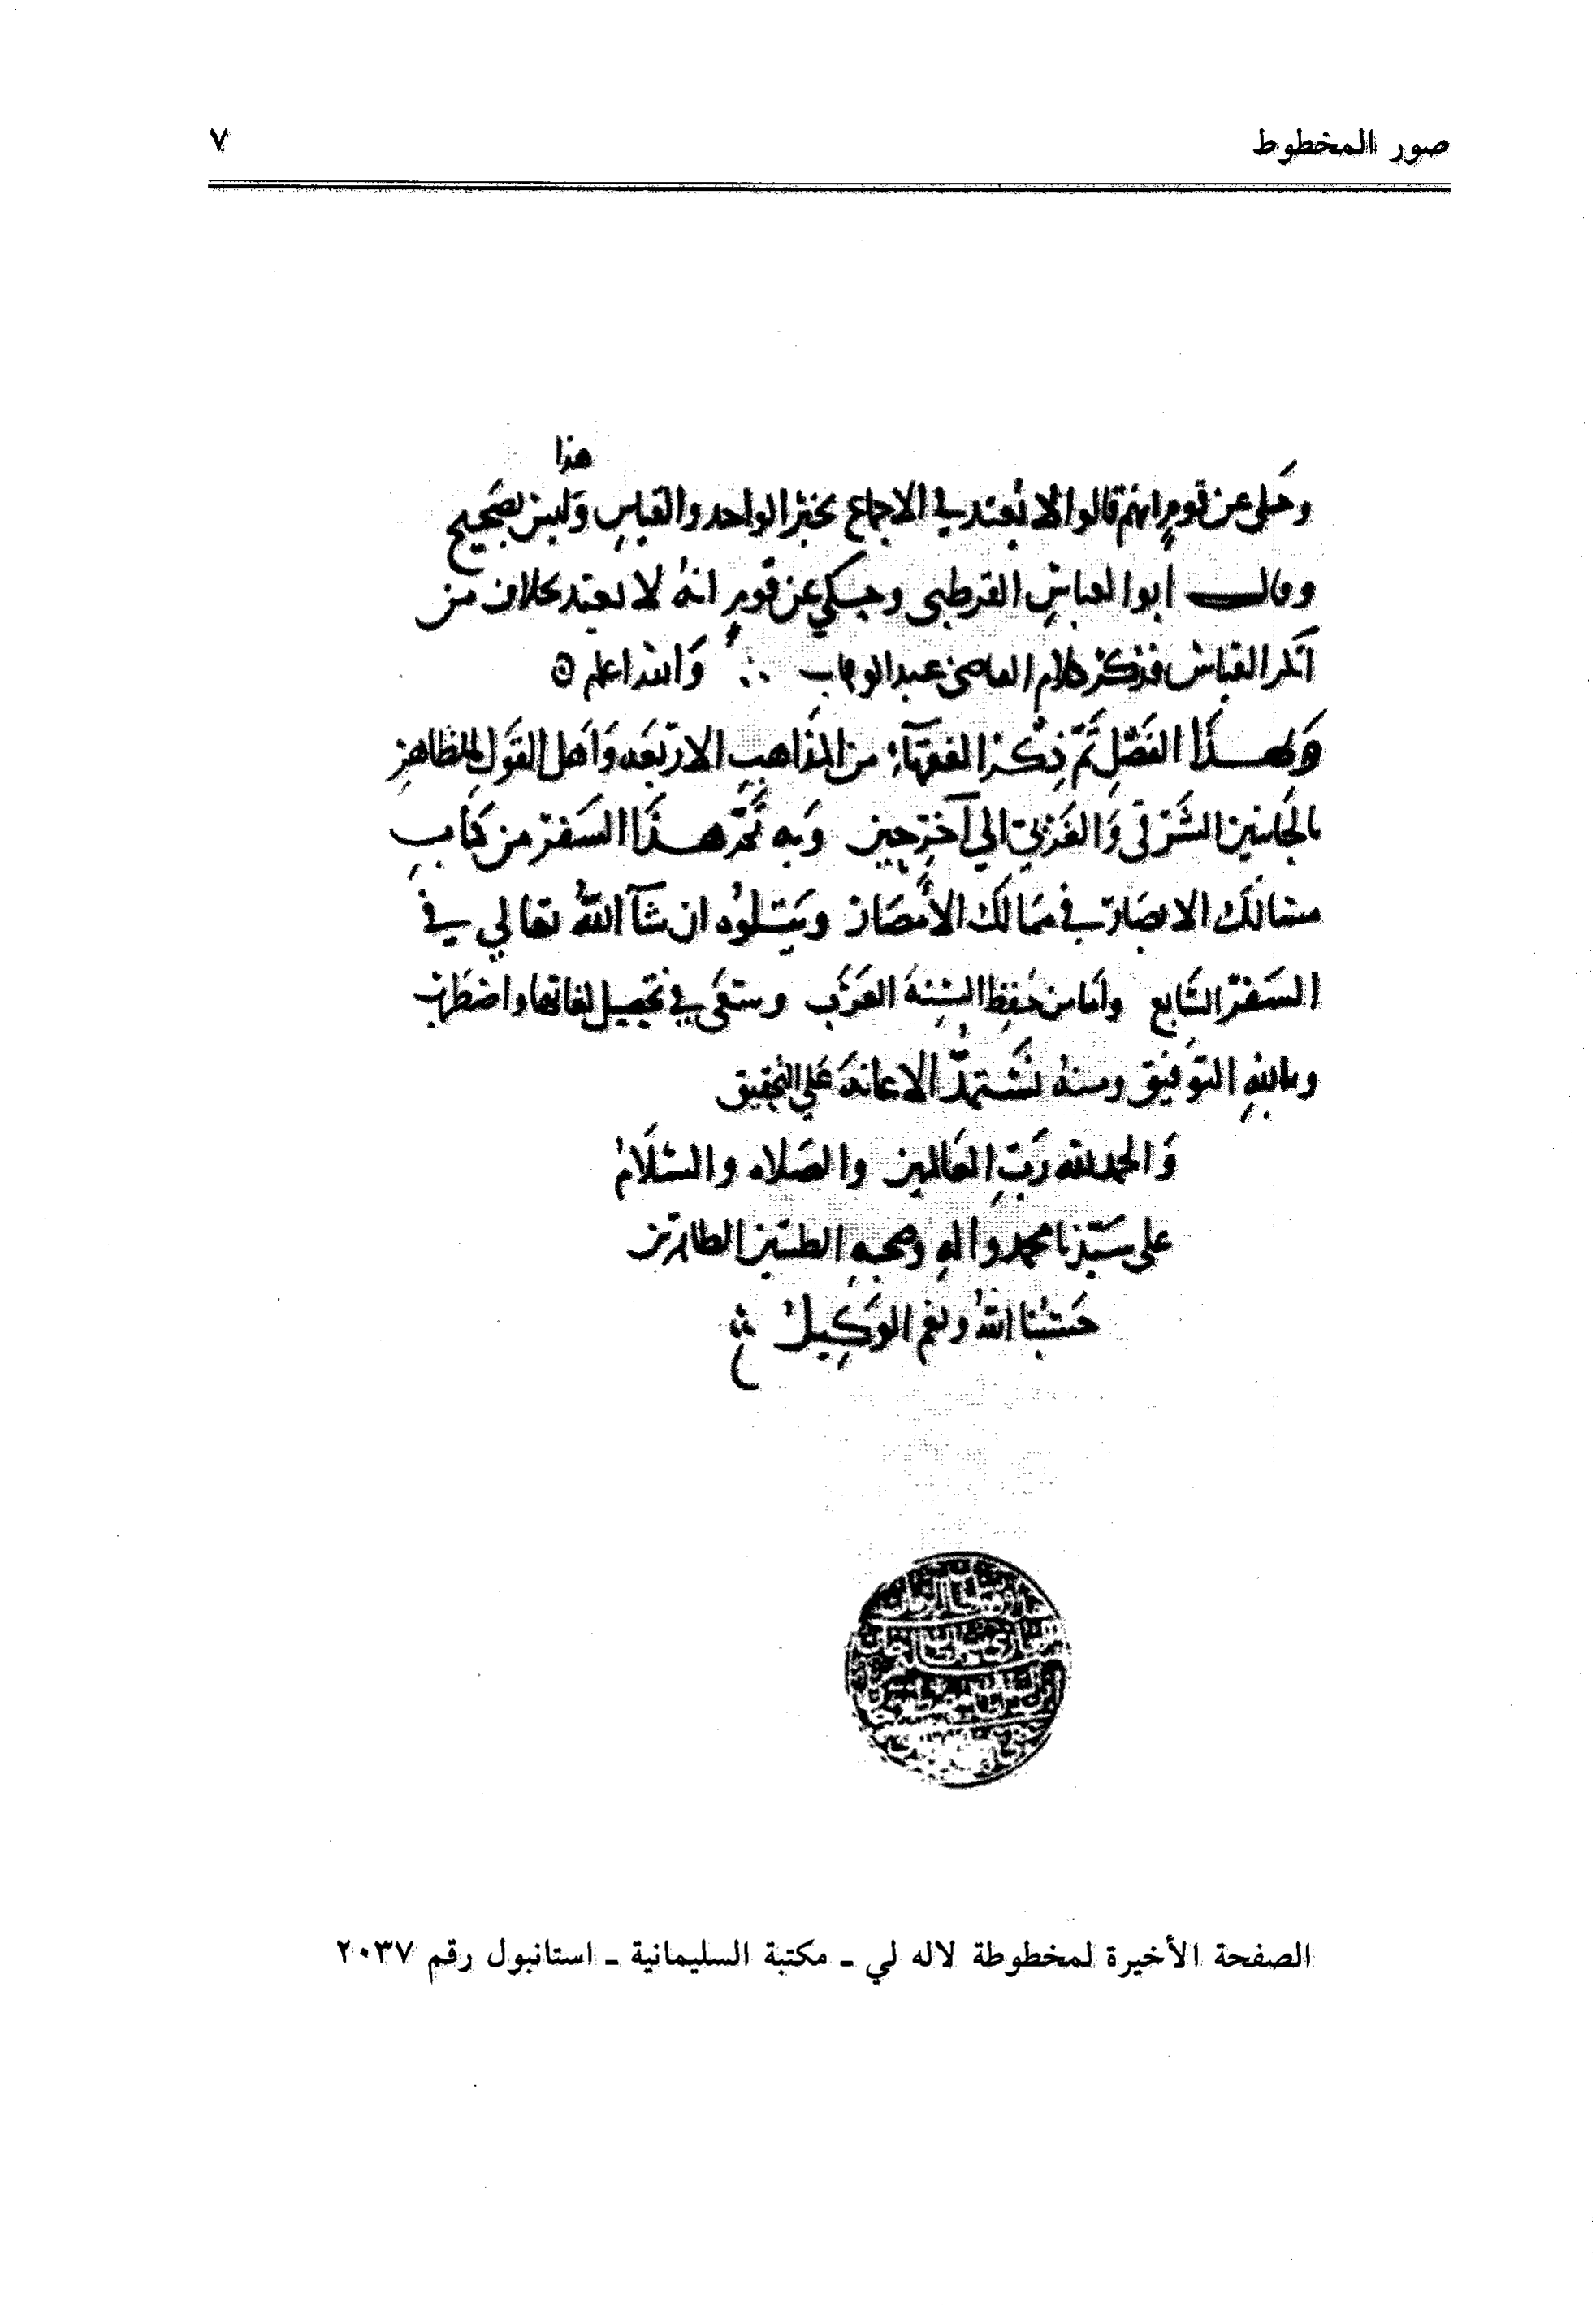 صور المخطوط
٧
هذا
وحكى عن قوم انهم قالوا لا نعتد في الاجماع بخبر الواحد والقياس وليس بصحيح
وقال أبو العباس القرطبي وحكي عن قوم انه لا يعتد بخلاف من
أنكر القياس فذكر كلام القاضي عبد الوهاب ∴ وَالله اعلم
وَبهذا الفَصْلِ تمّ ذِكر الفقهآءِ من المذَاهبِ الاربَعه وَاهل القَولِ بالظاهِرِ
بالجانبين الشَرقي وَالغَربي الي آخرِ حين وَبه تمّ هذَا السَفر من كتَابِ
مسَالك الابصَار في ممَالك الأمصَار وَيَتلوُه ان شآ اللهُ تعَالي في
السَفر السَّابع وأما من حفِظ السِنة العَرَب وسَعَى في تحصِيل لغاتها واضطَرب
وباللهِ التوَفيق ومنهُ نَستمدّ الاعانَة عَلي التحقيق
وَالحمد لله رَبِّ العَالمين والصَلاه والسَّلَامُ
على سَيّدنا محمد واله وصحبه الطيّبين الطاهرين
حَسْبُنا اللهُ ونعْم الوَكِيلُ
الصفحة الأخيرة لمخطوطة لاله لي ـ مكتبة السليمانية ـ استانبول رقم ٢٠٣٧